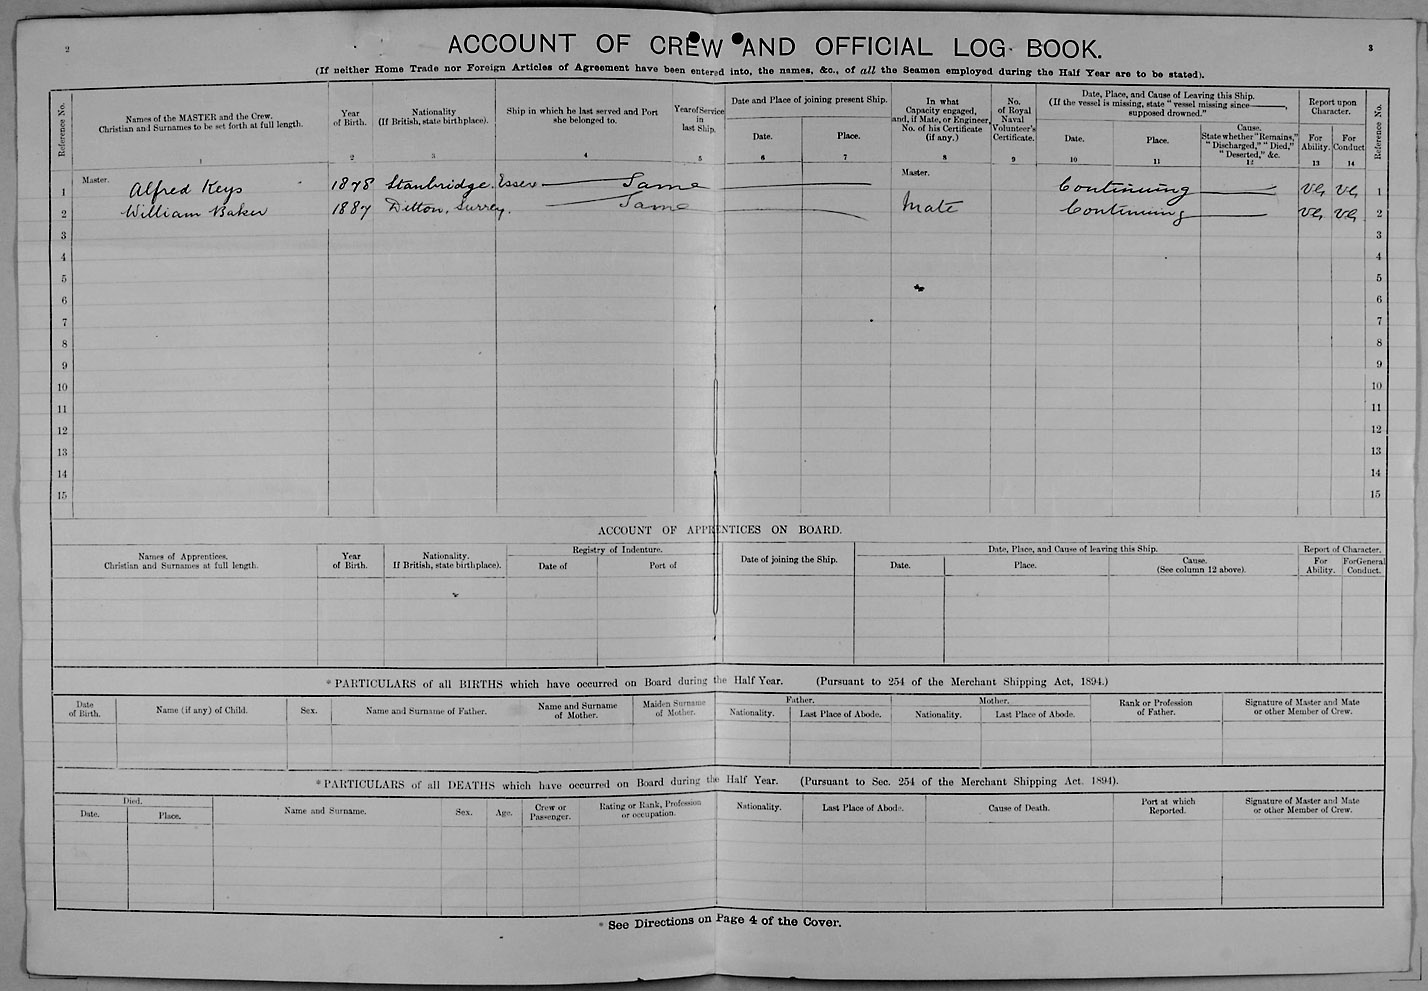 2
3
ACCOUNT OF CREW AND OFFICIAL LOG BOOK.
(If neither Home Trade nor Foreign Articles of Agreement have been entered into, the names, &c., of all the Seamen employed during the Half Year are to be stated).
Reference No.
Names of the MASTER and the Crew.
Christian and Surnames to be set forth at full length.
1
Year
of Birth.
2
Nationality
(If British, state birthplace).
3
Ship in which he last served and Port
she belonged to.
4
Year of Service
in
last Ship.
5
Date and Place of joining present Ship.
Date.
6
Place.
7
In what
Capacity engaged,
and, if Mate, or Engineer,
No. of his Certificate
(if any.)
8
No.
of Royal
Naval
Volunteer's
Certificate.
9
Date, Place, and Cause of Leaving this Ship.
(If the vessel is missing, state "vessel missing since———,
supposed drowned."
Date.
10
Place.
11
Cause.
State whether "Remains,"
"Discharged," "Died,"
"Deserted," &c.
12
Report upon
Character.
For
Ability.
13
For
Conduct
14
Reference No.
1 Master. Alfred Keys 1878 Stanbridge. Essex Same Master. Continuing VG VG 1
2 William Baker 1887 Ditton, Surrey. Same Mate Continuing VG VG 2
3 3
4 4
5 5
6 6
7 7
8 8
9 9
10 10
11 11
12 12
13 13
14 14
15 15
ACCOUNT OF APPRENTICES ON BOARD.
Names of Apprentices.
Christian and Surnames at full length.
Year
of Birth.
Nationality.
If British, state birthplace).
Registry of Indenture.
Date of
Port of
Date of joining the Ship.
Date, Place, and Cause of leaving this Ship.
Date.
Place.
Cause.
(See column 12 above).
Report of Character.
For
Ability.
For General
Conduct.
* PARTICULARS of all BIRTHS which have occurred on Board during the Half Year. (Pursuant to 254 of the Merchant Shipping Act, 1894.)
Date
of Birth.
Name (if any) of Child.
Sex.
Name and Surname of Father.
Name and Surname
of Mother.
Maiden Surname
of Mother.
Father.
Nationality.
Last Place of Abode.
Mother.
Nationality.
Last Place of Abode.
Rank or Profession
of Father.
Signature of Master and Mate
or other Member of Crew.
* PARTICULARS of all DEATHS which have occurred on Board during the Half Year. (Pursuant to Sec. 254 of the Merchant Shipping Act. 1894).
Died.
Date.
Place.
Name and Surname.
Sex.
Age.
Crew or
Passenger.
Rating or Rank, Profession
or occupation.
Nationality.
Last Place of Abode.
Cause of Death.
Port at which
Reported.
Signature of Master and Mate
or other Member of Crew.
* See Directions on Page 4 of the Cover.